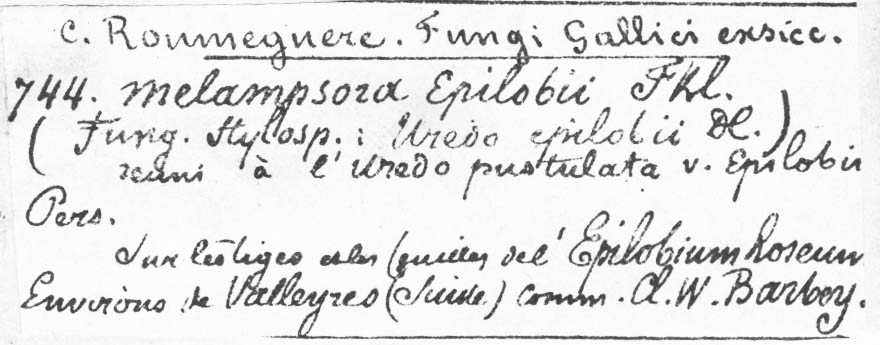 C. Roumeguere. Fungi Gallici exsicc.
744. Melampsora Epilobii Fkl.
(Fung. Stylosp.: Uredo epilobii DC.)
reuni à l'Uredo pustulata v. Epilobii
Pers.
Sur les tiges et les feuilles de l'Epilobium Roseum
Environs de Valleyres (Suisse) comm. Cl. W. Barbey.